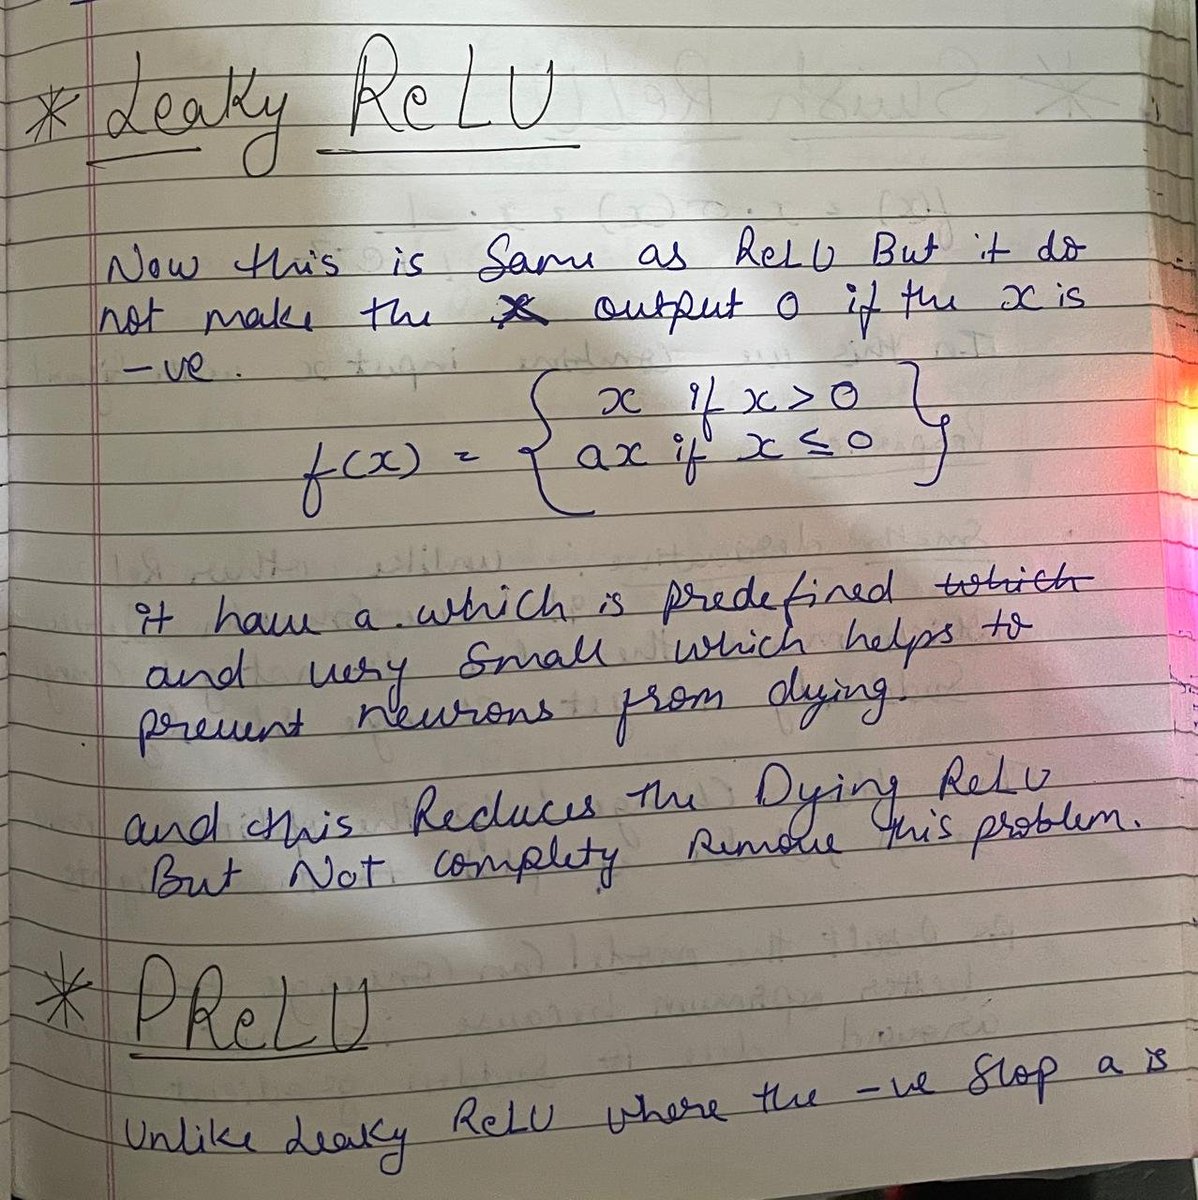 * Leaky ReLU
Now this is Same as ReLU But it do
not make the output 0 if the x is
-ve.
x if x > 0
f(x) = { }
ax if x ≤ 0
it have a. which is predefined which
and very small which helps to
prevent neurons from dying.
and this Reduces the Dying ReLU
But Not complety Remove this problem.
* PReLU
Unlike Leaky ReLU where the -ve Slop a is